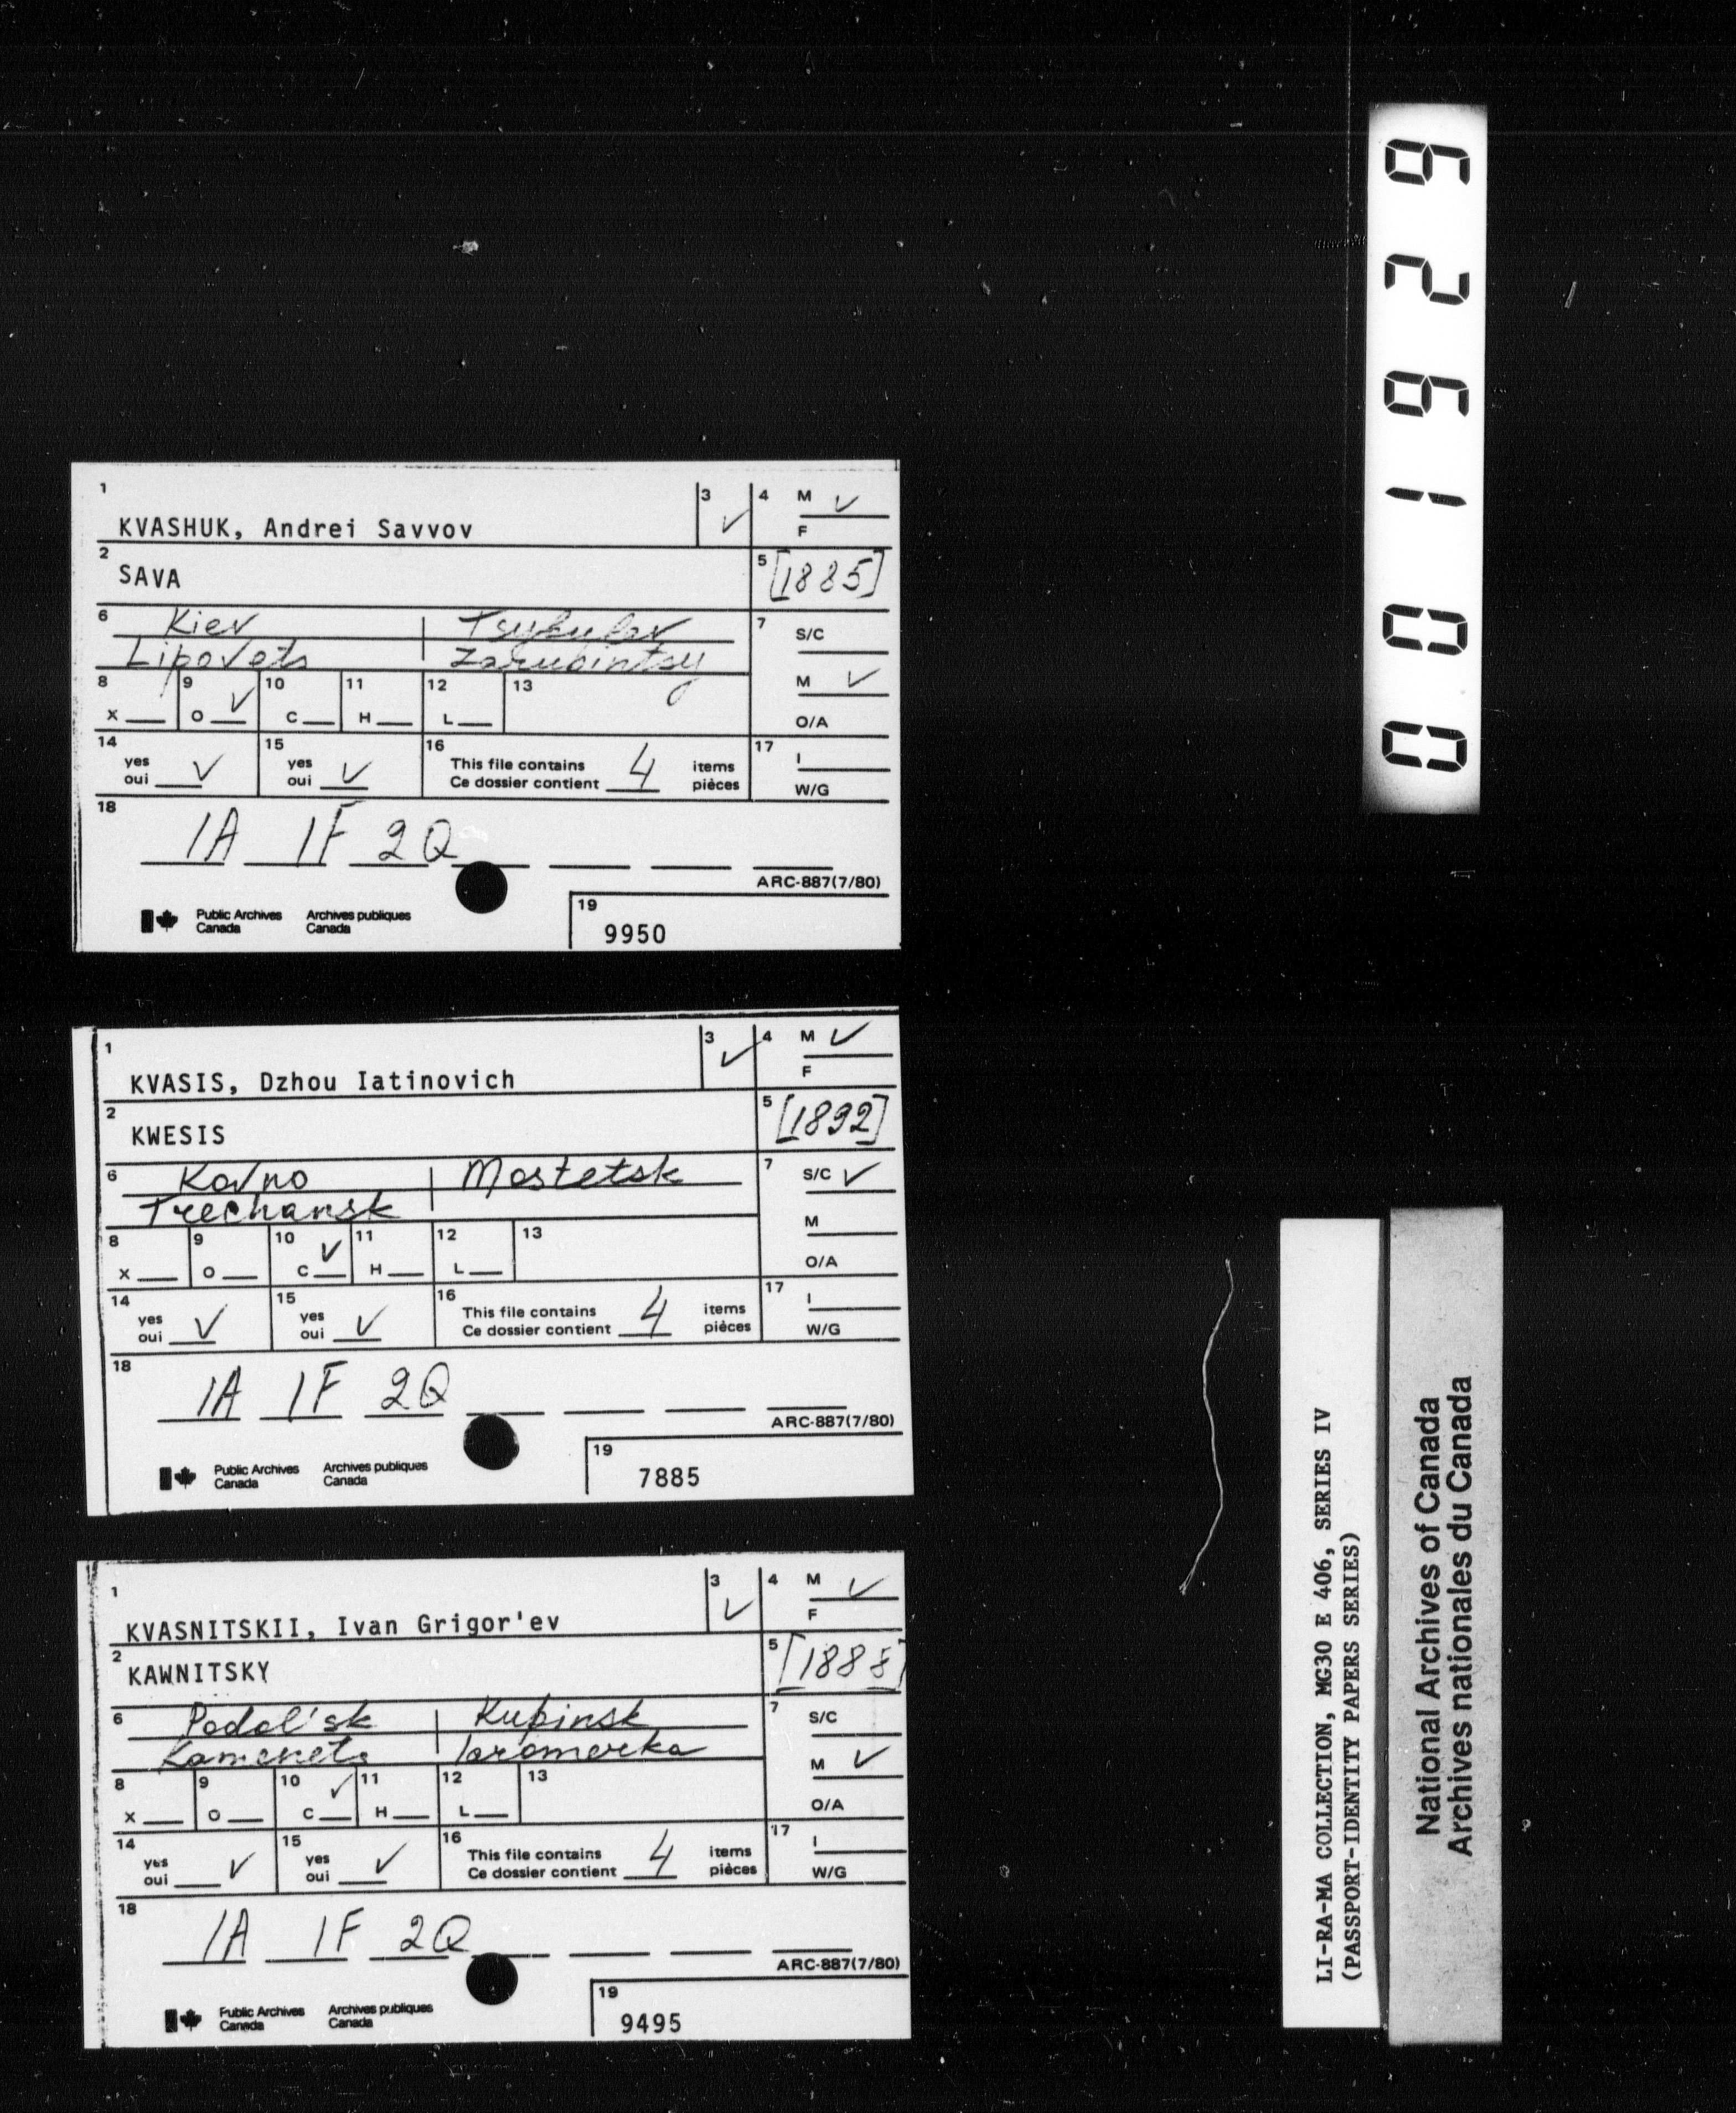 1
KVASHUK, Andrei Savvov
3 ✓
4 M ✓
F
2
SAVA
5 [1885]
6 Kiev | Tsybulev
Lipovets Zarubintsy
7 S/C
M ✓
O/A
8 X 9 O ✓ 10 C 11 H 12 L 13
14 yes oui ✓ 15 yes oui ✓ 16 This file contains 4 items
Ce dossier contient pièces
17 I
W/G
18 1A 1F 2Q
ARC-887(7/80)
Public Archives Canada Archives publiques Canada
19 9950
1
KVASIS, Dzhou Iatinovich
3 ✓
4 M ✓
F
2
KWESIS
5 [1892]
6 Kovno | Mostetsk
Trechansk
7 S/C ✓
M
O/A
8 X 9 O 10 C ✓ 11 H 12 L 13
14 yes oui ✓ 15 yes oui ✓ 16 This file contains 4 items
Ce dossier contient pièces
17 I
W/G
18 1A 1F 2Q
ARC-887(7/80)
Public Archives Canada Archives publiques Canada
19 7885
1
KVASNITSKII, Ivan Grigor'ev
3 ✓
4 M ✓
F
2
KAWNITSKY
5 [1888]
6 Podol'sk | Kupinsk
Kamenets Iaromerka
7 S/C
M ✓
O/A
8 X 9 O 10 C ✓ 11 H 12 L 13
14 yes oui ✓ 15 yes oui ✓ 16 This file contains 4 items
Ce dossier contient pièces
17 I
W/G
18 1A 1F 2Q
ARC-887(7/80)
Public Archives Canada Archives publiques Canada
19 9495
001929
LI-RA-MA COLLECTION, MG30 E 406, SERIES IV
(PASSPORT-IDENTITY PAPERS SERIES)
National Archives of Canada
Archives nationales du Canada